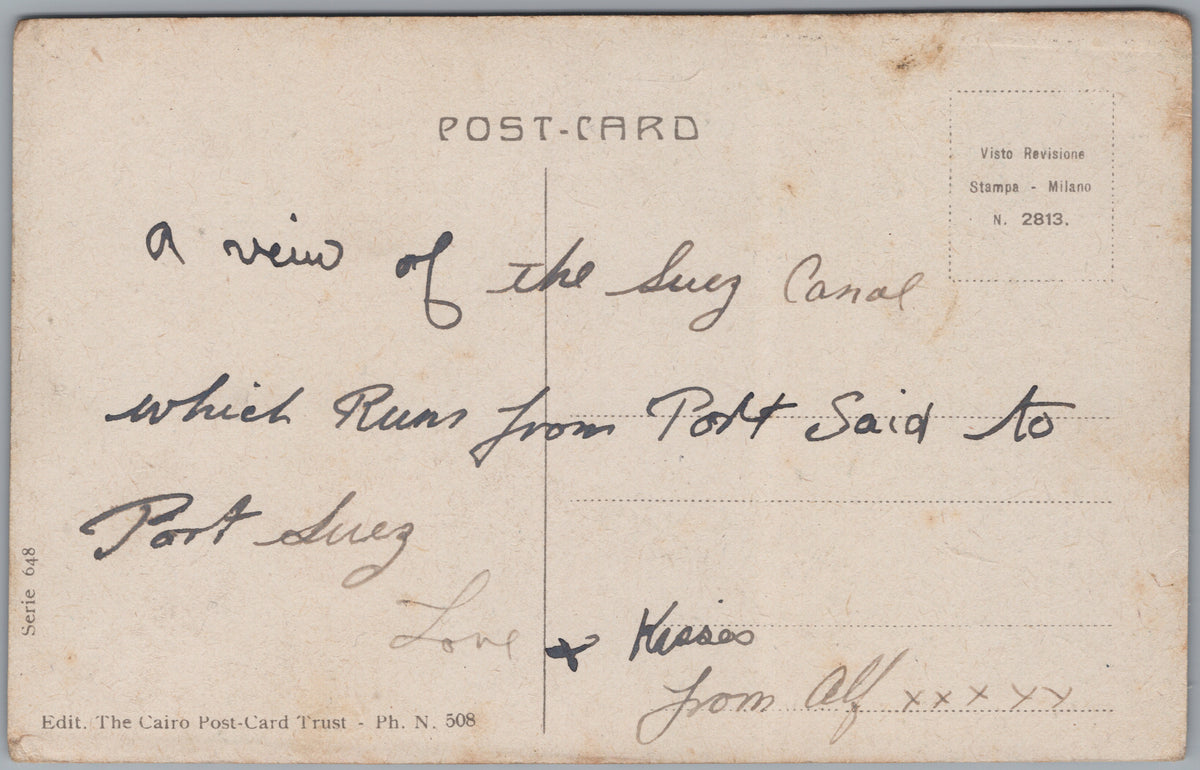 POST-CARD
Visto Revisione
Stampa - Milano
N. 2813.
A veiw of the Suez Canal
which Runs from Port Said to
Port Suez
Love + Kisses
from Alf xxxxx
Serie 648
Edit. The Cairo Post-Card Trust - Ph. N. 508